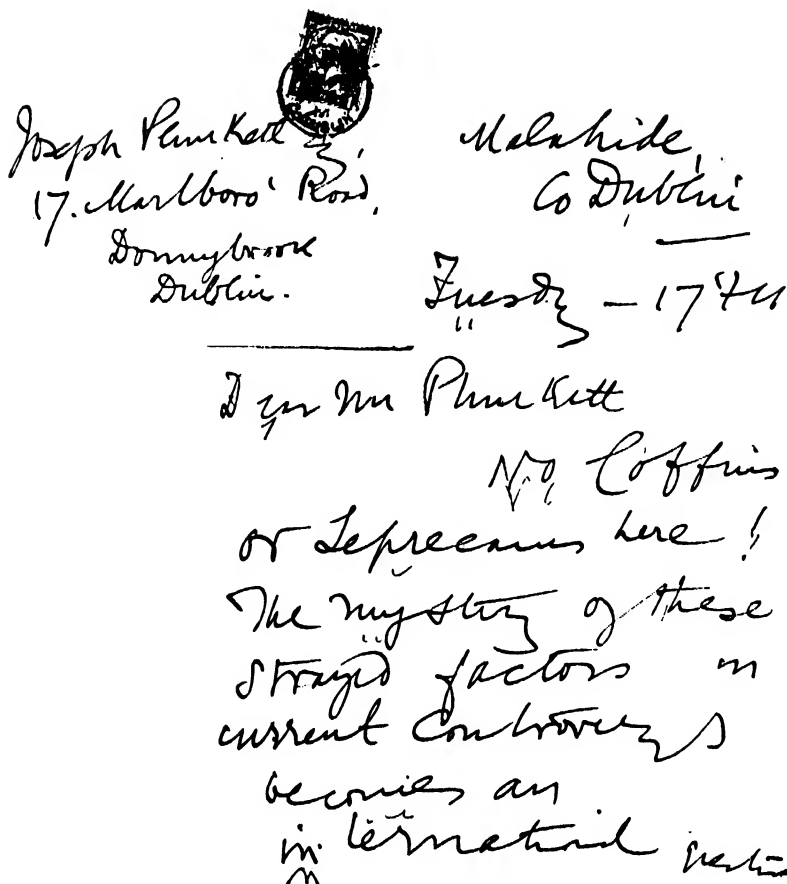 Joseph Plunkett
17. Marlboro' Road,
Donnybrook
Dublin.
Malahide,
Co Dublin
Tuesday — 17
Dear Mr Plunkett
No Coffins
or Leprecauns here!
The mystery of these
strayed factors in
current controversy
becomes an
international question